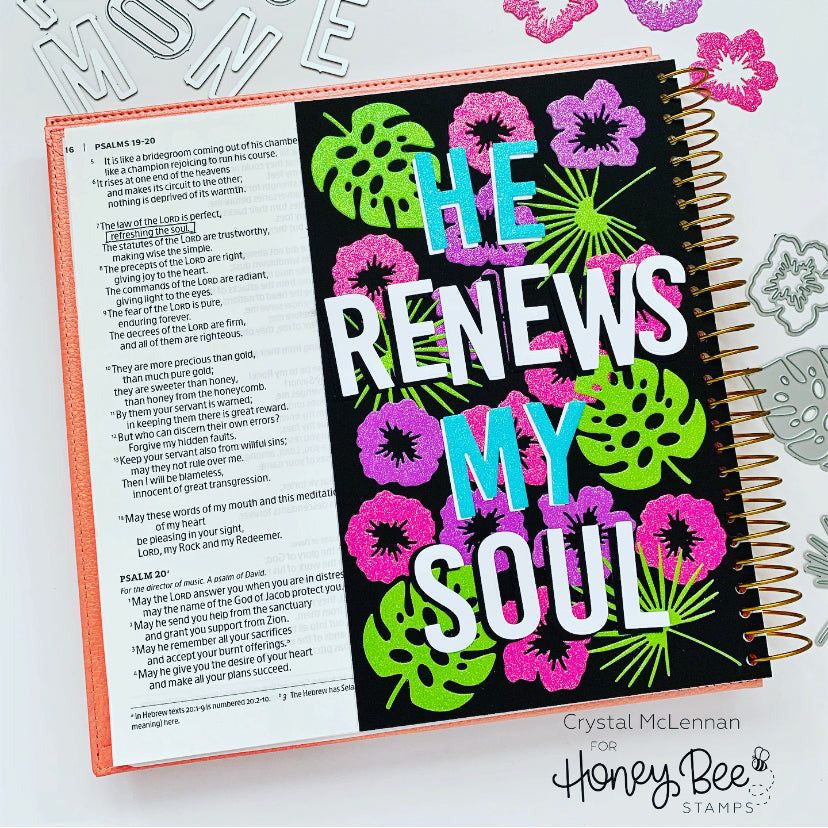 16 | PSALMS 19-20
5 It is like a bridegroom coming out of his chambe
like a champion rejoicing to run his course.
6 It rises at one end of the heavens
and makes its circuit to the other;
nothing is deprived of its warmth.
7 The law of the LORD is perfect,
refreshing the soul.
The statutes of the LORD are trustworthy,
making wise the simple.
8 The precepts of the LORD are right,
giving joy to the heart.
The commands of the LORD are radiant,
giving light to the eyes.
9 The fear of the LORD is pure,
enduring forever.
The decrees of the LORD are firm,
and all of them are righteous.
10 They are more precious than gold,
than much pure gold;
they are sweeter than honey,
than honey from the honeycomb.
11 By them your servant is warned;
in keeping them there is great reward.
12 But who can discern their own errors?
Forgive my hidden faults.
13 Keep your servant also from wilful sins;
may they not rule over me.
Then I will be blameless,
innocent of great transgression.
14 May these words of my mouth and this meditatio
of my heart
be pleasing in your sight,
LORD, my Rock and my Redeemer.
PSALM 20a
For the director of music. A psalm of David.
1 May the LORD answer you when you are in distres
may the name of the God of Jacob protect you.
2 May he send you help from the sanctuary
and grant you support from Zion.
3 May he remember all your sacrifices
and accept your burnt offerings.b
4 May he give you the desire of your heart
and make all your plans succeed.
a In Hebrew texts 20:1-9 is numbered 20:2-10. b 3 The Hebrew has Sela
meaning) here.
HE
RENEWS
MY
SOUL
Crystal McLennan
FOR
Honey Bee
STAMPS